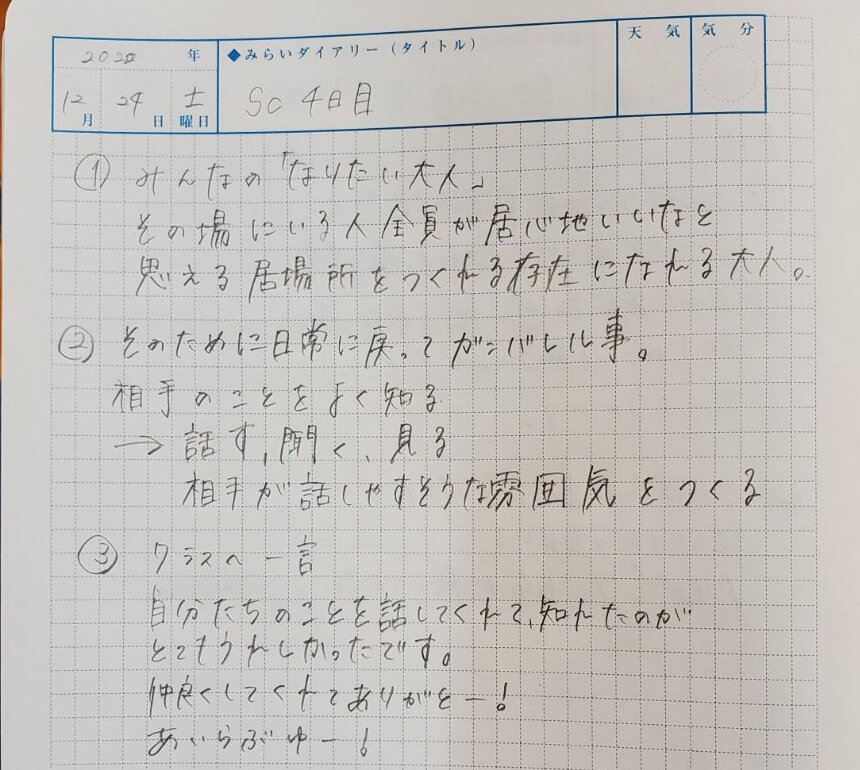 2022 年 ◆みらいダイアリー(タイトル) 天気 気分
12月 24日 土曜日 SC 4日目
① みんなの「なりたい大人」
その場にいる人全員が居心地いいなと
思える居場所をつくれる存在になれる大人。
② そのために日常に戻ってガンバレル事。
相手のことをよく知る
→ 話す,聞く、見る
相手が話しやすそうな雰囲気をつくる
③ クラスへ一言
自分たちのことを話してくれて、知れたのが
とてもうれしかったです。
仲良くしてくれてありがとー!
あいらぶゆー!